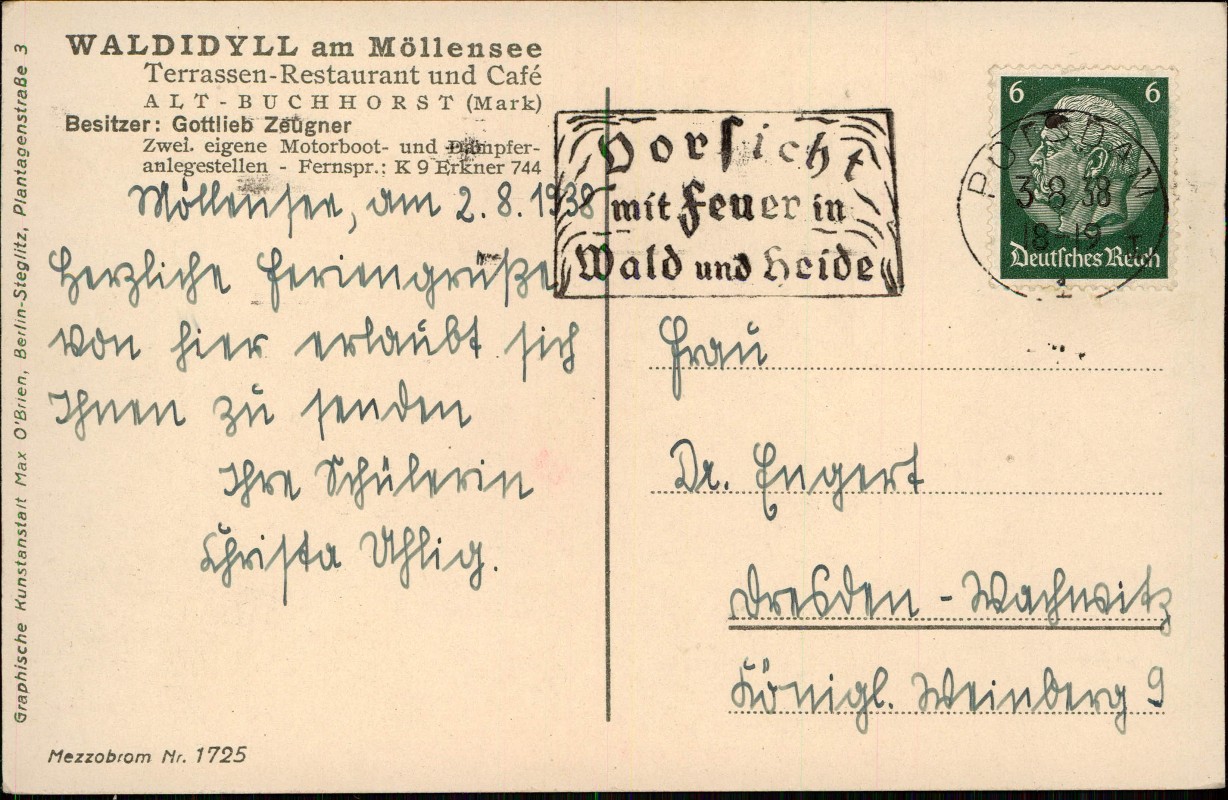 WALDIDYLL am Möllensee
Terrassen-Restaurant und Café
ALT-BUCHHORST (Mark)
Besitzer: Gottlieb Zeugner
Zwei eigene Motorboot- und Dampfer-
anlegestellen - Fernspr.: K 9 Erkner 744
Möllensee, am 2. 8. 1938
Herzliche Feriengrüße
von hier erlaubt sich
Ihnen zu senden
Ihre Schülerin
Christa Uhlig.
Graphische Kunstanstalt Max O'Brien, Berlin-Steglitz, Plantagenstraße 3
Mezzobrom Nr. 1725
Vorsicht
mit Feuer in
Wald und Heide
6 6
Deutsches Reich
POTSDAM
3-8 38
18-19
1
Frau
Dr. Engert
Dresden - Wachwitz
Königl. Weinberg 9